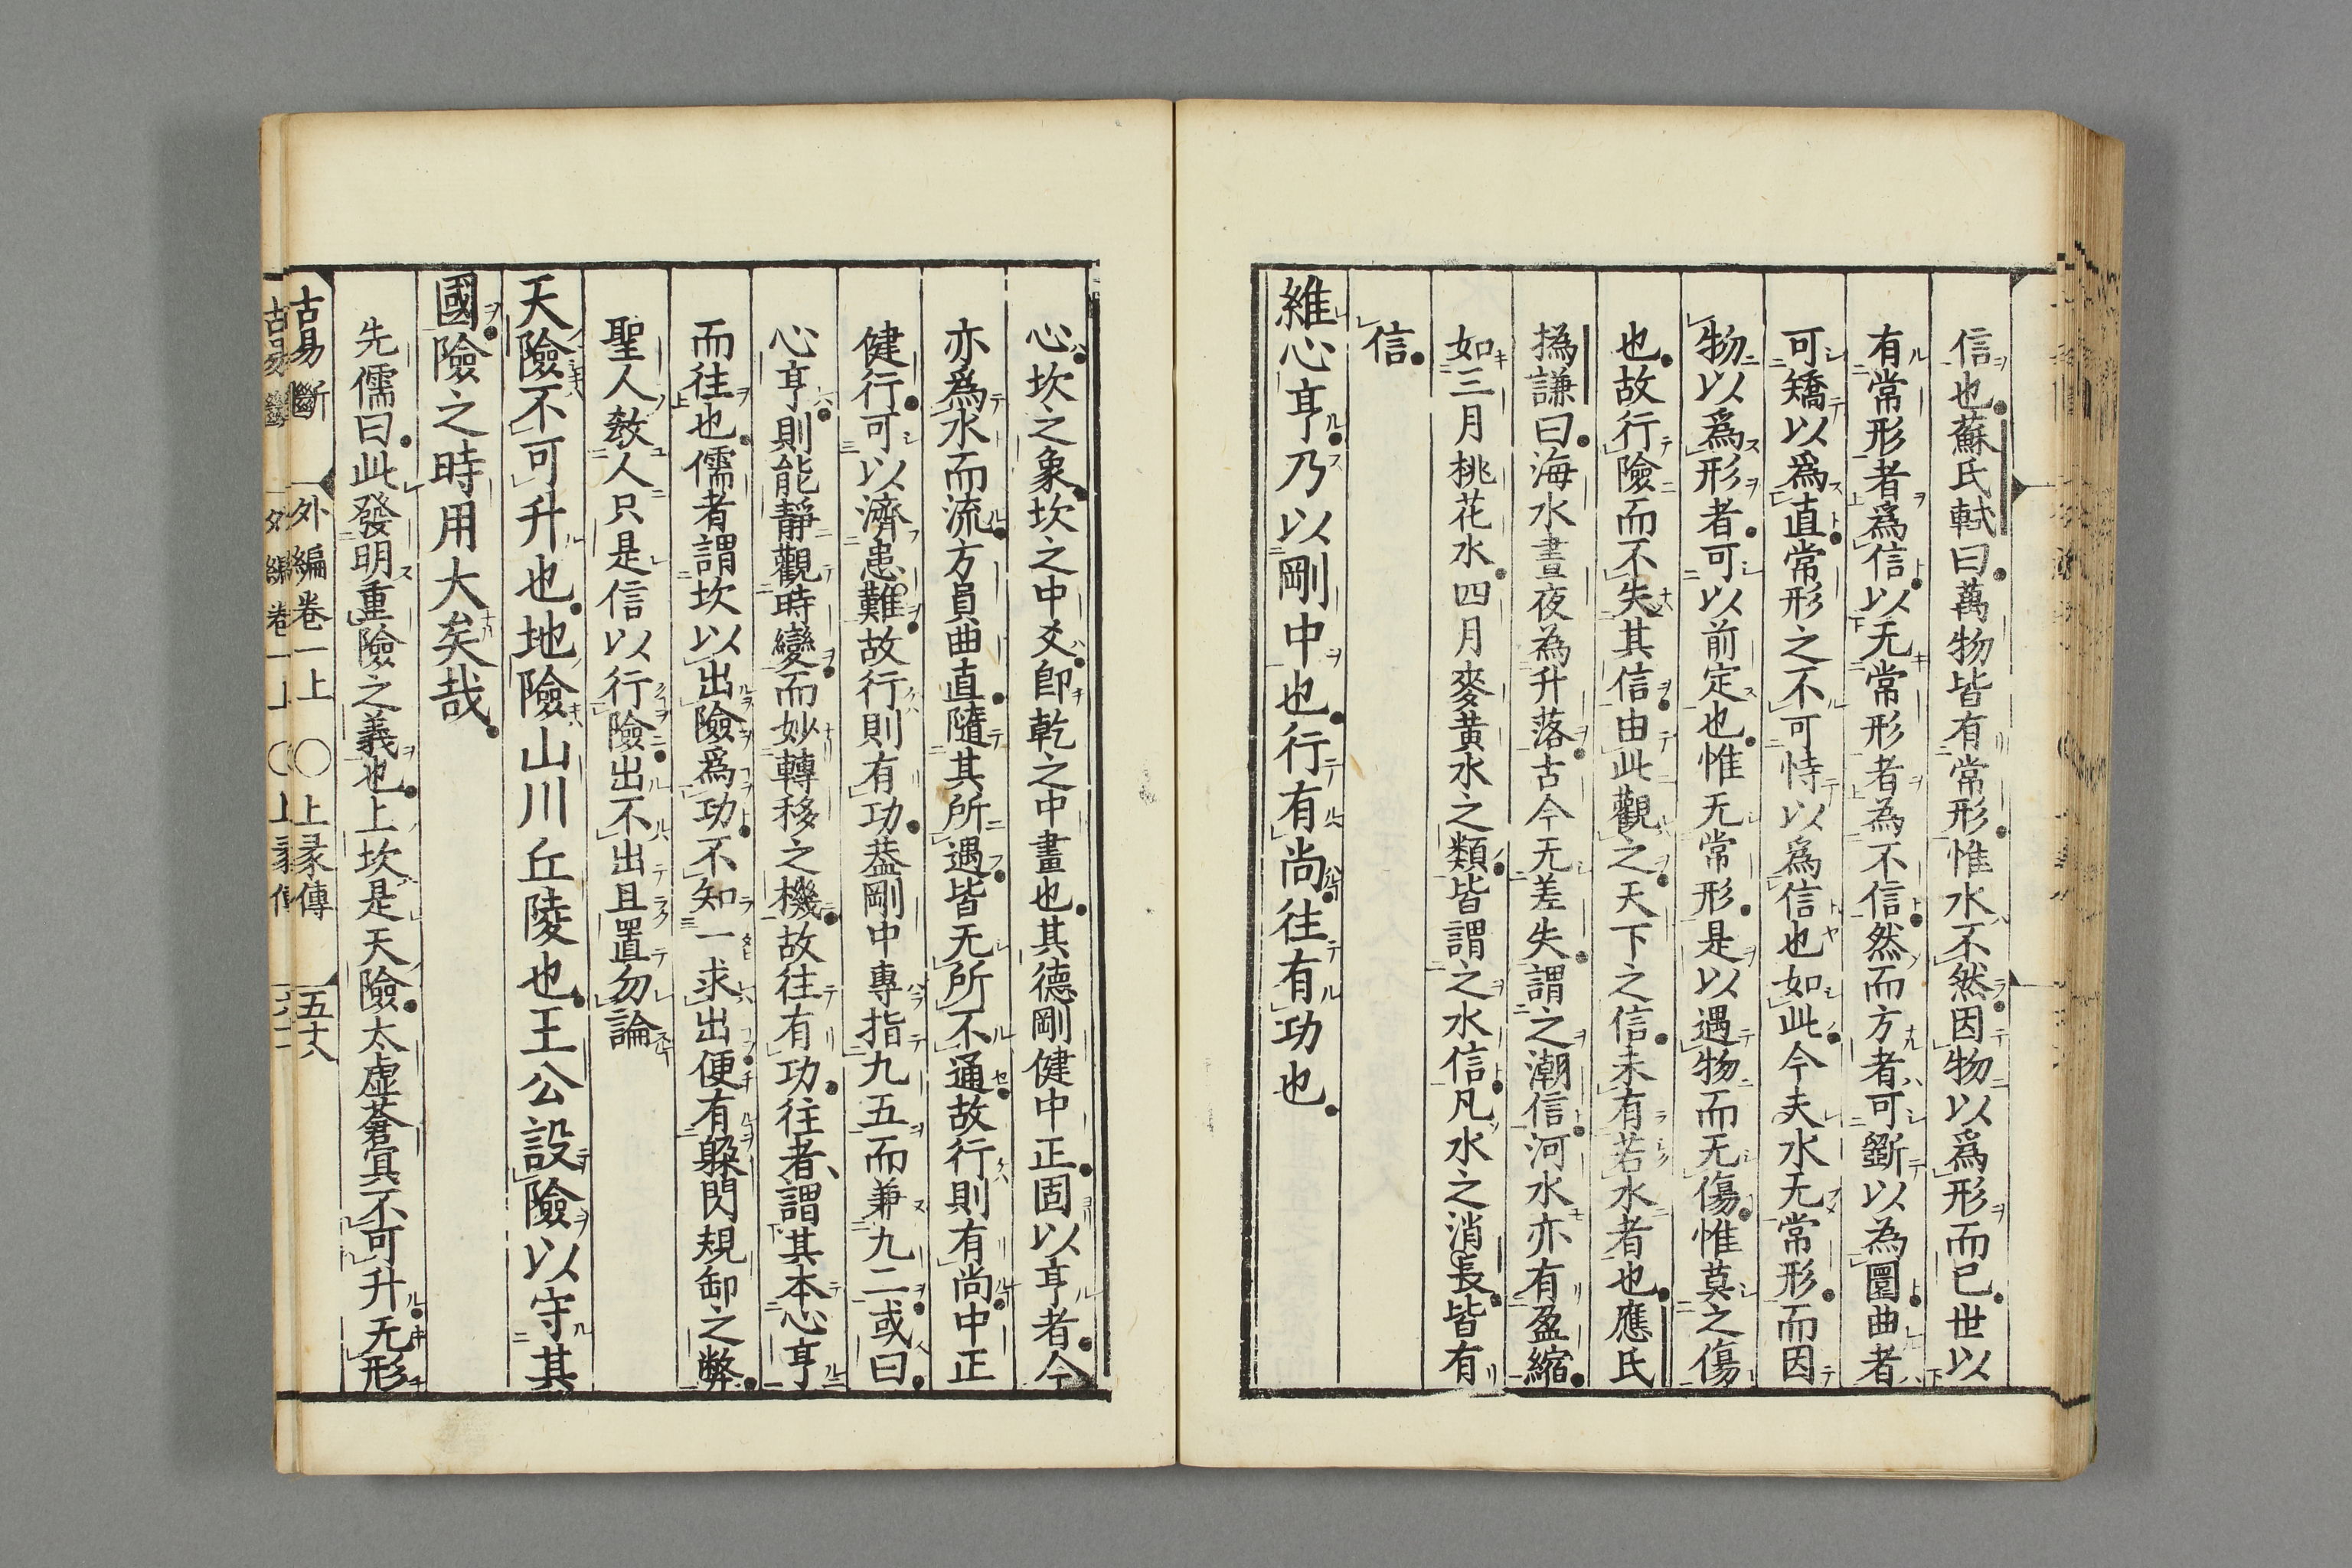 信也蘇氏軾曰萬物皆有常形惟水不然因物以爲形而已世以
有常形者爲信以无常形者為不信然而方者可斵以為圜曲者
可矯以爲直常形之不可恃以爲信也如此今夫水无常形而因
物以爲形者可以前定也惟无常形是以遇物而无傷惟莫之傷
也故行險而不失其信由此觀之天下之信未有若水者也應氏
撝謙曰海水晝夜為升落古今无差失謂之潮信河水亦有盈縮
如三月桃花水四月麥黃水之類皆謂之水信凡水之消長皆有
信
維心亨乃以剛中也行有尚往有功也
心坎之象坎之中爻卽乾之中畫也其德剛健中正固以亨者今
亦爲水而流方員曲直隨其所遇皆无所不通故行則有尚中正
健行可以濟患難故行則有功葢剛中專指九五而兼九二或曰
心亨則能靜觀時變而妙轉移之機故往有功往者謂其本心亨
而往也儒者謂坎以出險爲功不知一求出便有躱閃規卸之弊
聖人敎人只是信以行險出不出且置勿論
天險不可升也地險山川丘陵也王公設險以守其
國險之時用大矣哉
先儒曰此發明重險之義也上坎是天險太虛蒼冥不可升无形
古易斷　外編卷一上　〇上彖傳　五十八